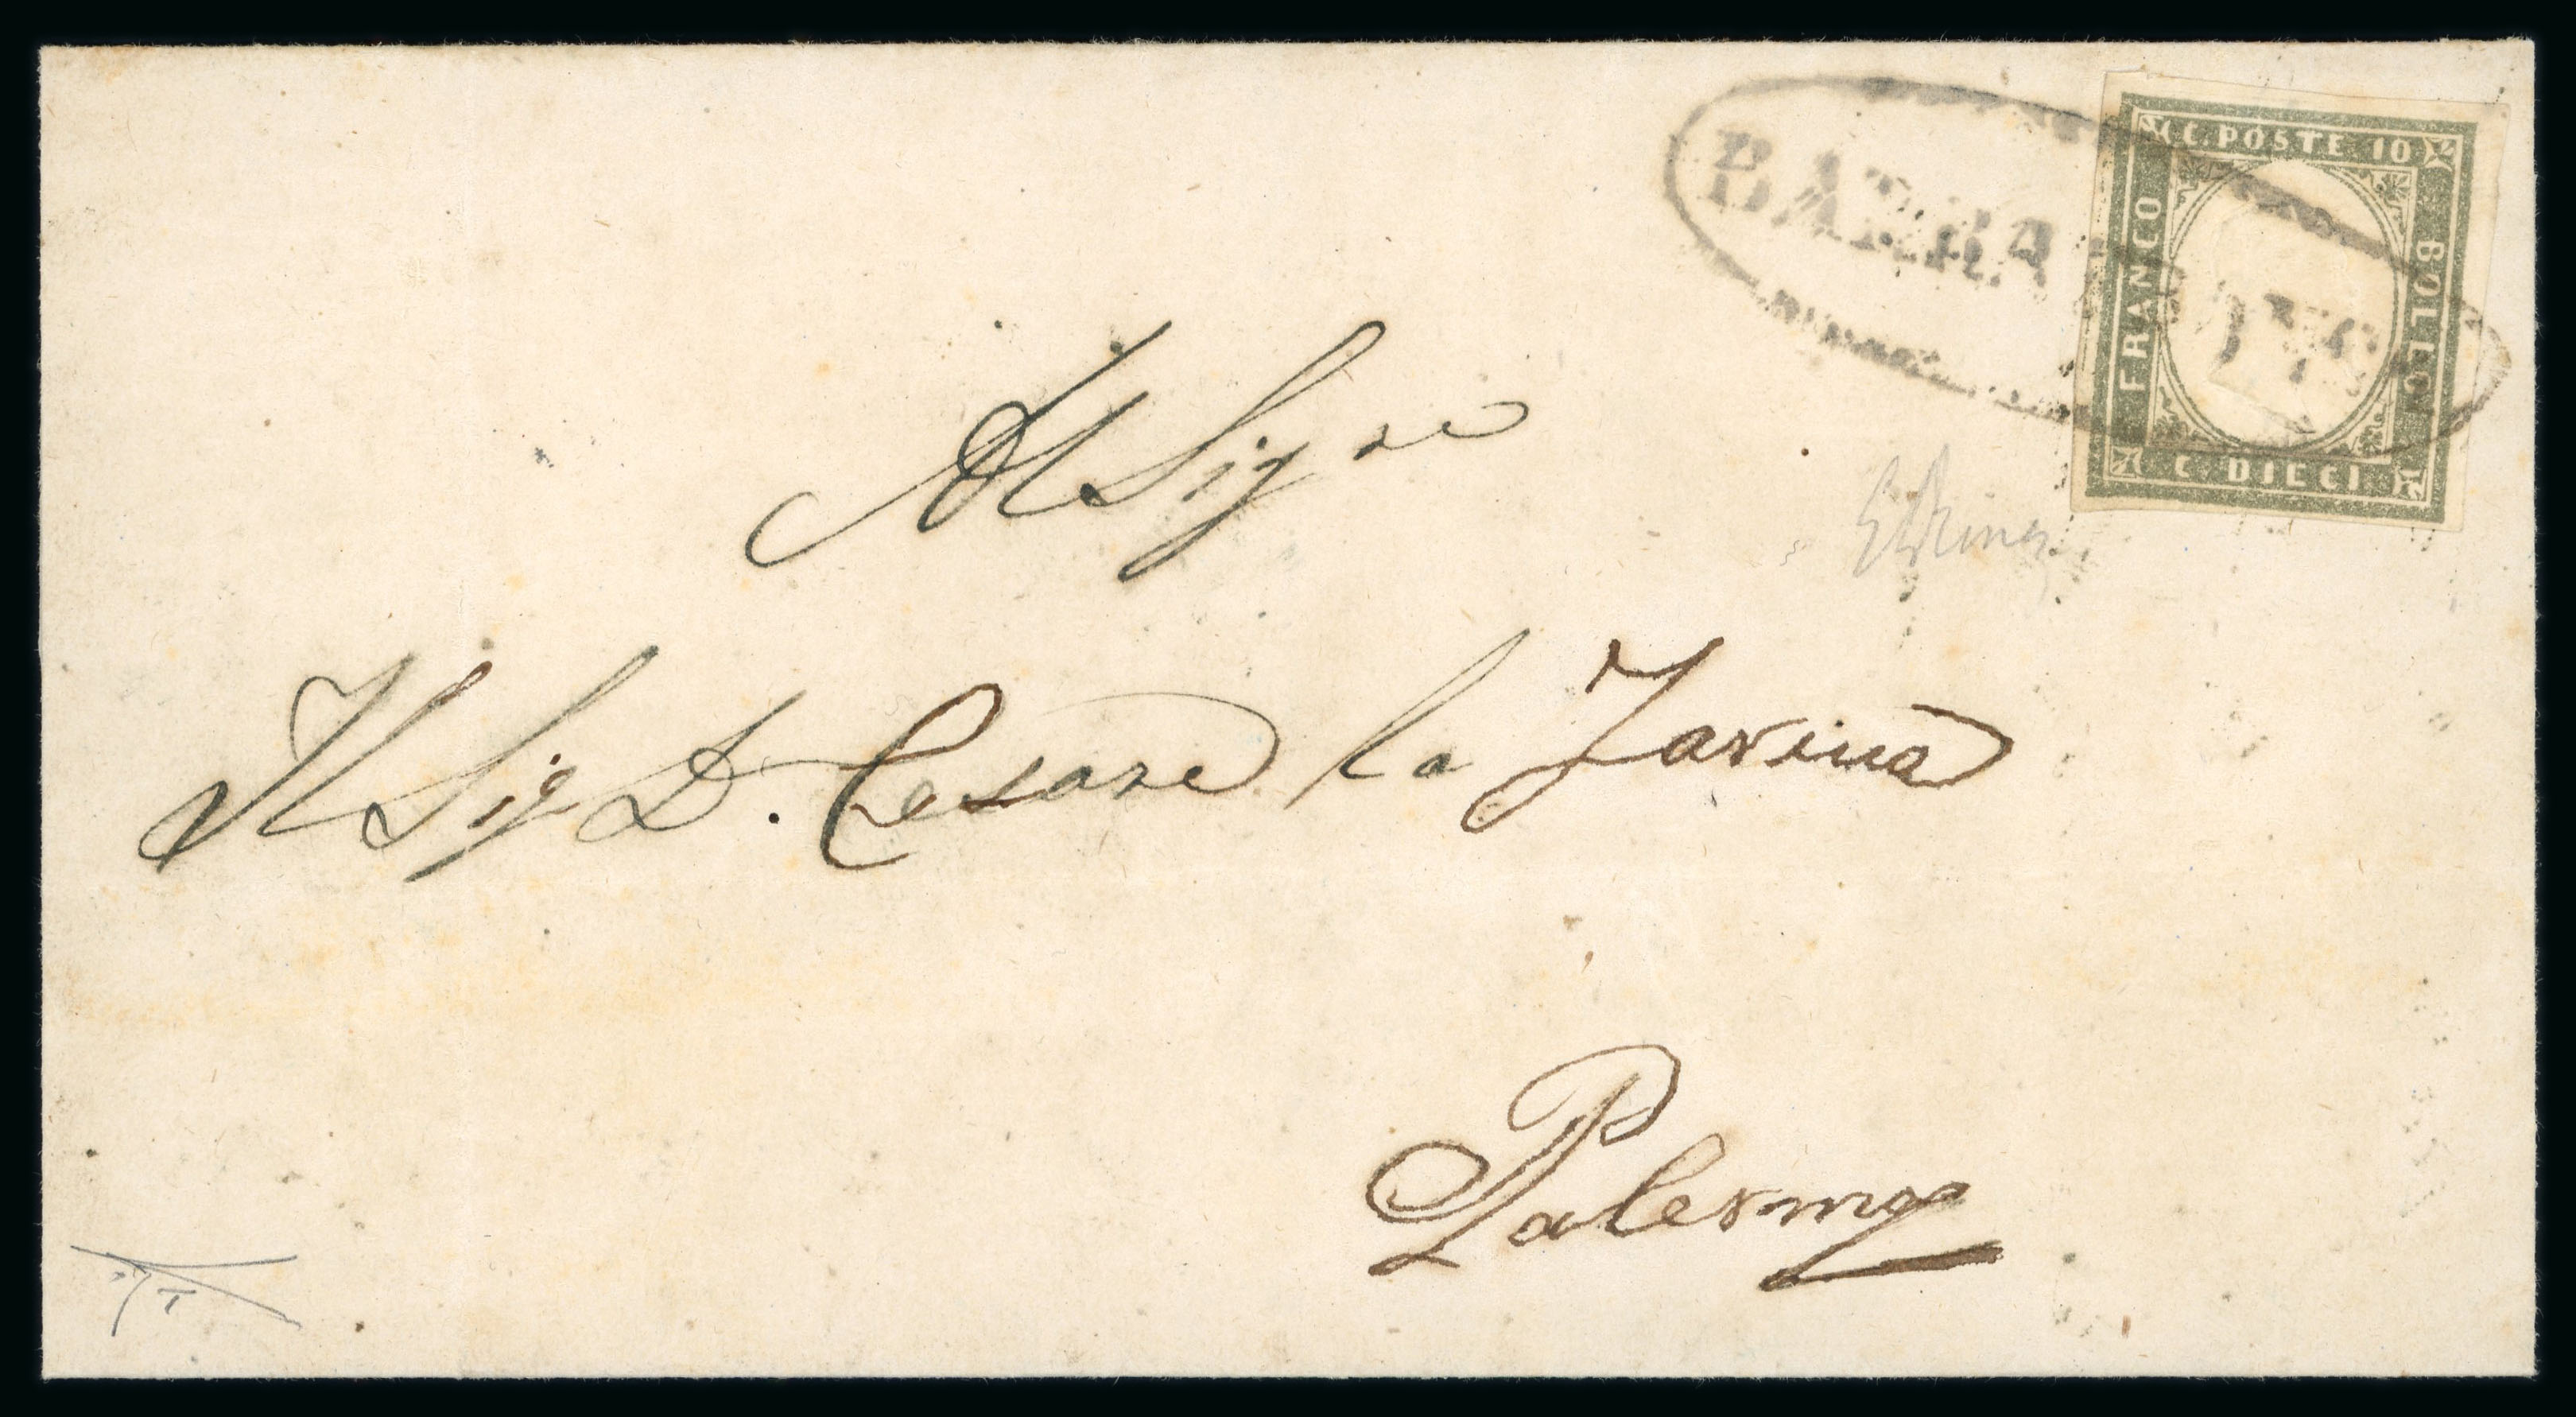 C. POSTE 10
FRANCO
BOLLO
C. DIECI
Al Sig re
Il Sig D. Cesare la Farina
Palermo